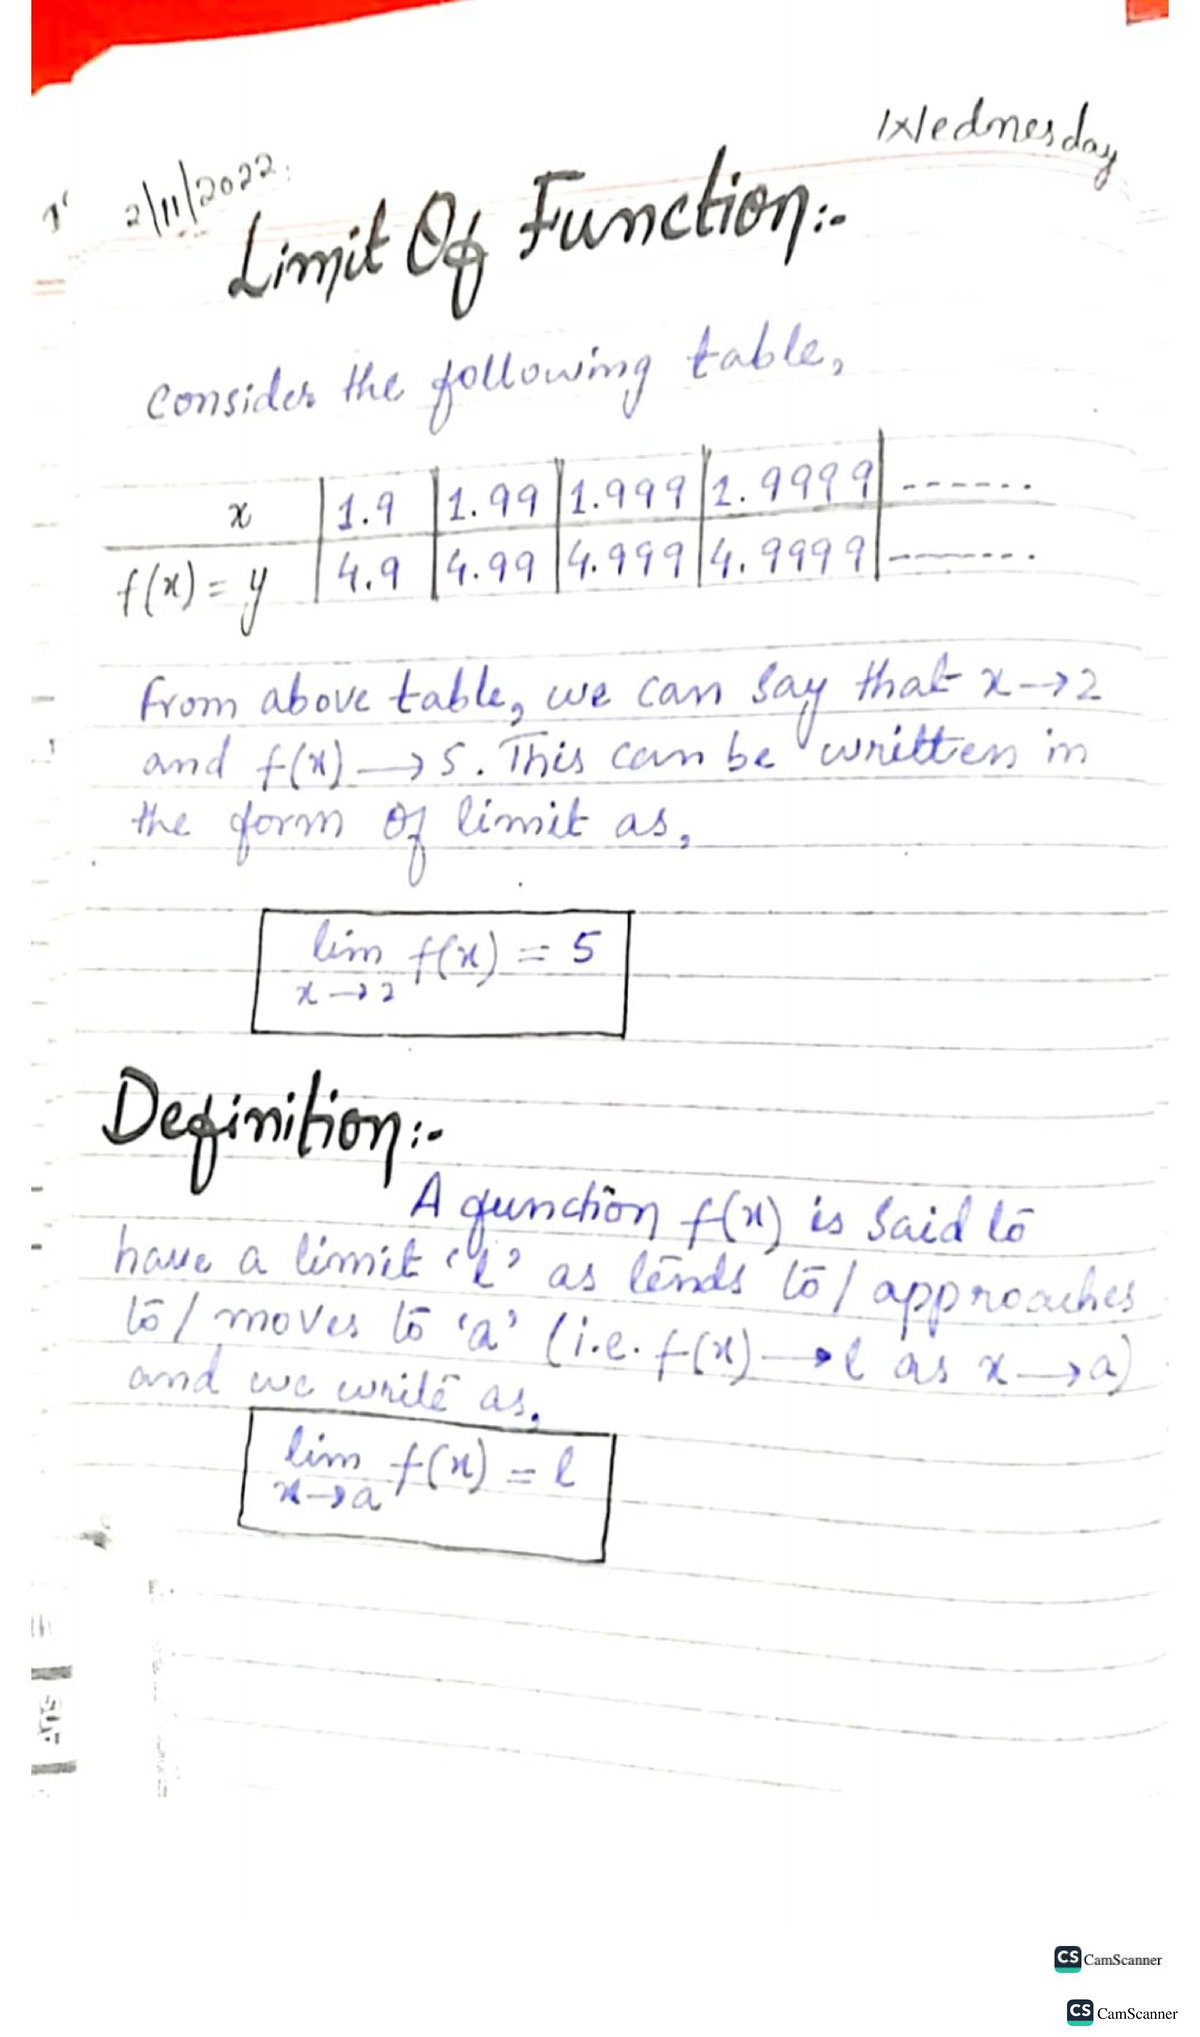 Wednesday
2/11/2022.
Limit Of Function:-
Consider the following table,
x | 1.9 | 1.99 | 1.999 | 1.9999 | ------
f(x) = y | 4.9 | 4.99 | 4.999 | 4.9999 | -------
From above table, we can say that x→2
and f(x) → 5. This can be written in
the form of limit as,
lim f(x) = 5
x→2
Definition:-
A function f(x) is said to
have a limit 'l' as tends to/ approaches
to/ moves to 'a' (i.e. f(x) → l as x → a)
and we write as,
lim f(x) = l
x→a
CS CamScanner
CS CamScanner